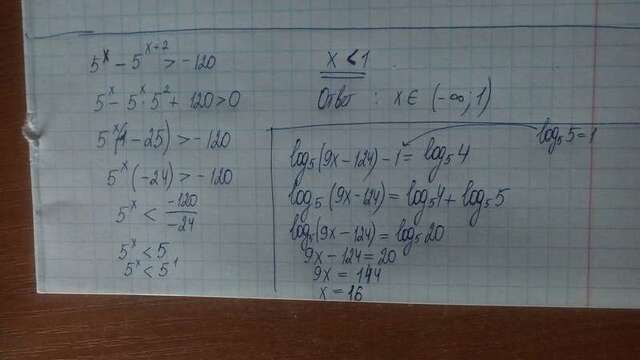 5^x - 5^{x+2} > -120
5^x - 5^x · 5^2 + 120 > 0
5^x (1 - 25) > -120
5^x (-24) > -120
5^x < \frac{-120}{-24}
5^x < 5
5^x < 5^1
x < 1
Ответ : x ∈ (-∞; 1)
log_5 5 = 1
log_5 (9x - 124) - 1 = log_5 4
log_5 (9x - 124) = log_5 4 + log_5 5
log_5 (9x - 124) = log_5 20
9x - 124 = 20
9x = 144
x = 16